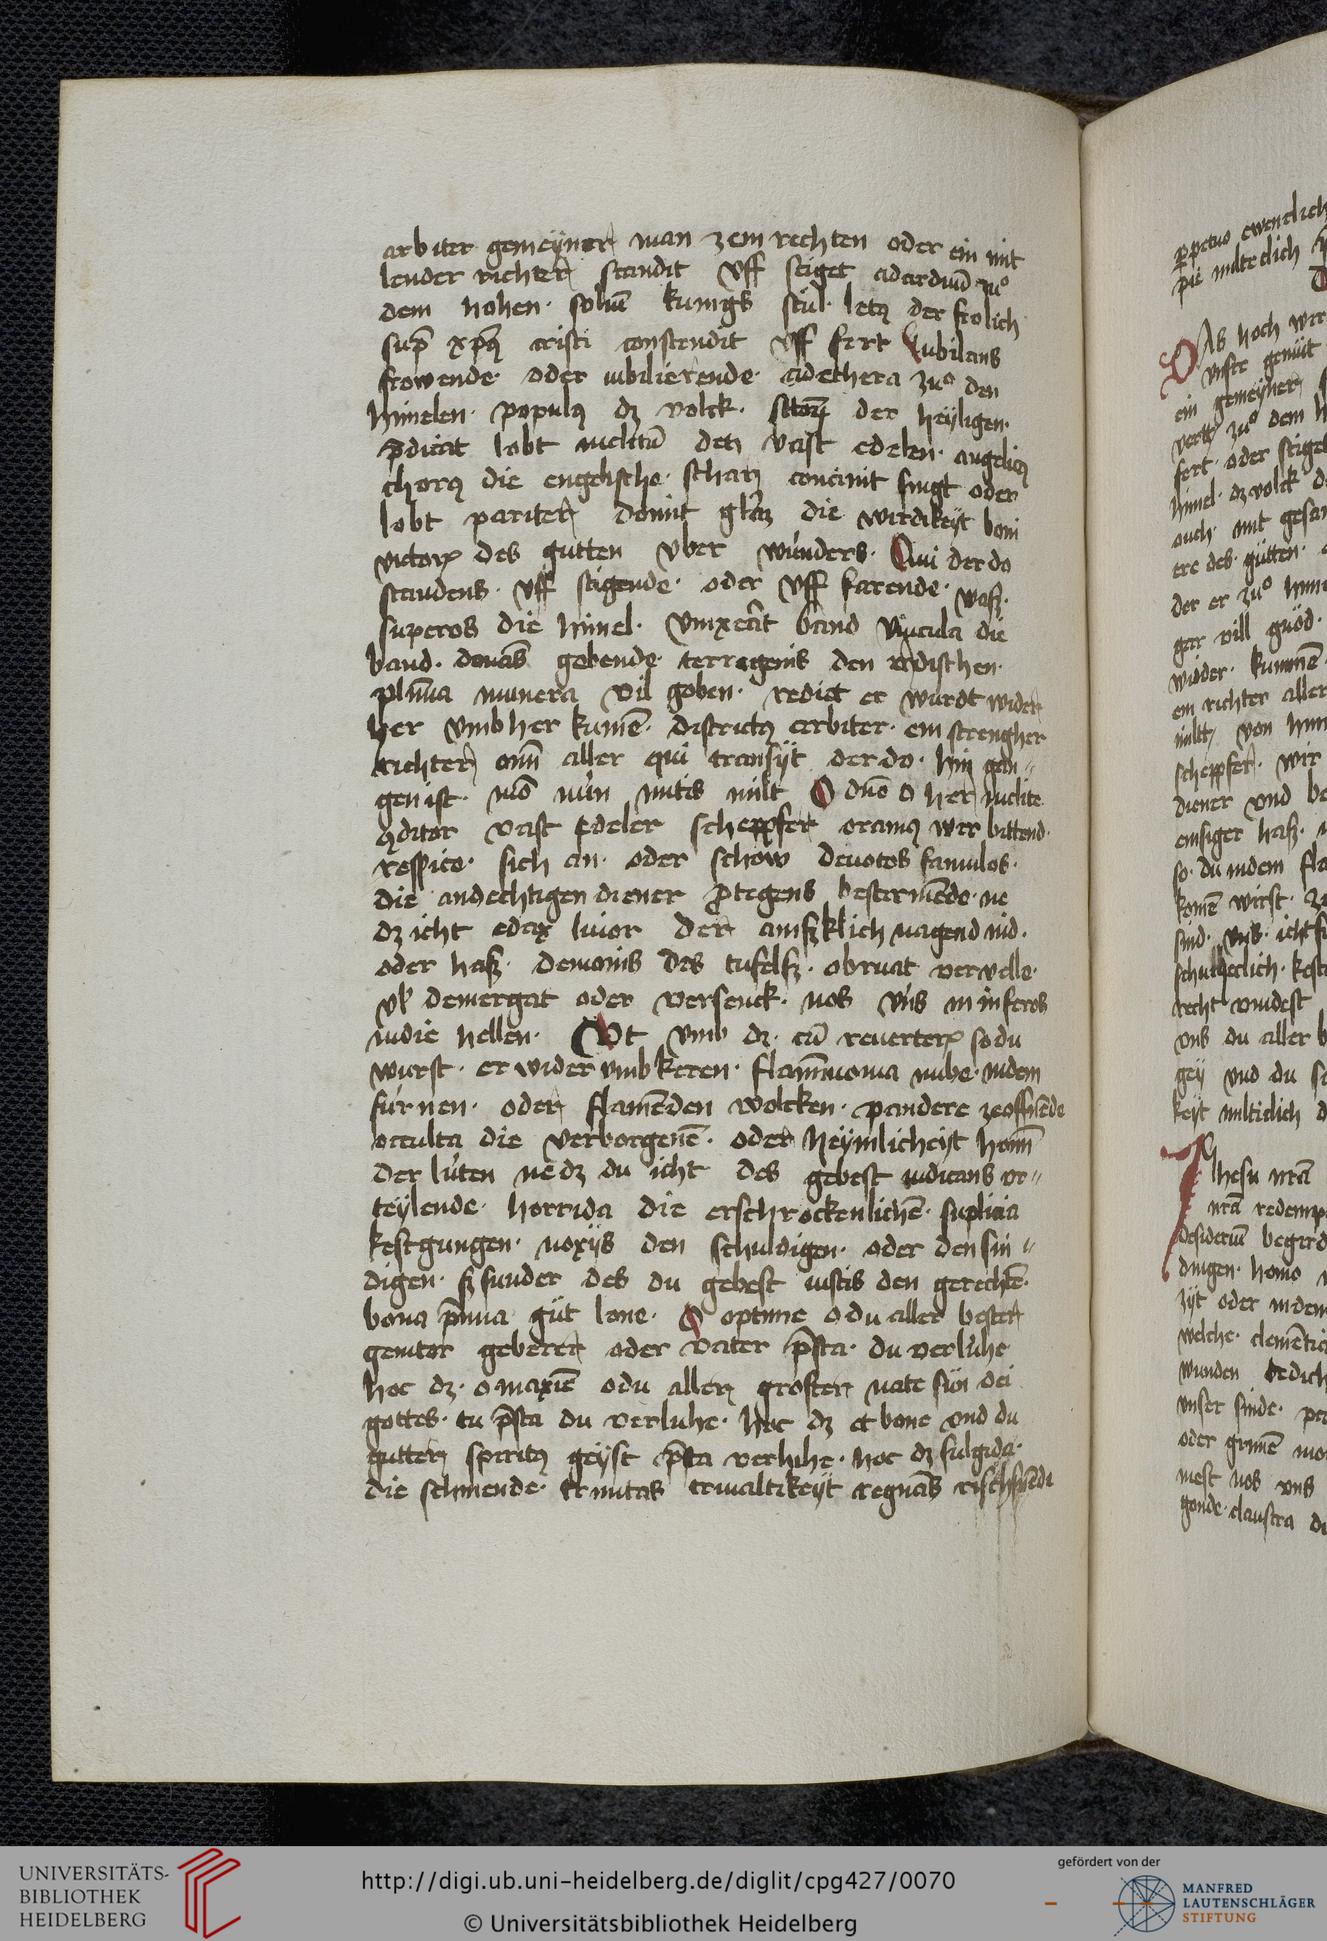 arbiter gemeyner man zem rechten oder ein mit
lender richter scandit vff stiget ad arduū zu°
dem hohen · soliū kunigs stul · letꝯ der frolich
sup̄ xp̄ꝯ cristi conscendit vff fert Iubilans
frowende · oder iubilierende · ad ethera zu° den
himelen · populꝯ dz volck · sctoꝝ der heyligen ·
p̄dicat lobt inclitū den vast edelen · angelicꝯ
chorꝯ die engelische · schar concinit singt oder
lobt pariter domit gloria die wirdikeyt boni
victoris des gutten vber winders · Qui der do
scandens · vff stigende · oder vff farende · waß ·
superos die himel · vinxerat band vincula die
band · donās gebende · terregenis den irdischen ·
plurima munera vil goben · redict er wurdt wider
her vmb her kumē · districtꝯ arbiter · ein strengher
richter omī aller qui transijt der do · hin gan-
gen ist · mō nůn mitis milt O dne o her inclite
cōditor vast Edeler schepfer oramꝯ wir bittend ·
respice · sich an · oder schow deuotos famulos ·
die andechtigen diener ꝓtegens beschirmēde · ne
dz icht edax liuor der amßklich nagend nid ·
oder haß · demonis des tufelß · obruat vervelle ·
vl' demergat oder versenck · nos vns in inferos
in die hellen · Vt vmb dz · cū reuerteris so du
wurst · er wider vmb keren · flammiuoma nube · in dem
fůrnen · oder flamēden wolcken · pandere zeoffnēde
occulta die verborgenē · oder heymlicheyt homī
der lůten ne dz du icht des gebest iudicans vr-
teylende · horrida die erschrockenlichē · suplicia
kestgungen · noxijs den schuldigen · oder den sin-
digen · sz sunder des du gebest iustis den gerechtē ·
bona p̄mia gůt lone · O optime o du aller bester
genitor geberer oder vater p̄sta · du verluhe
hoc dz · o maxime o du aller groster nate sůn dei
gottes · tu p̄sta du verluhe · hoc dz et bone vnd du
gutter spiritꝯ geyst p̄sta verluhe · hoc dz fulgida ·
die schinende · trinitas triualtikeyt regnās richsnēdi
ꝑpetuo ewenclich
pie milteclich
DAs hoch wir
vnser gemüt
ein gemeyner
zu° dem
fert · oder stiget
himel · dz volck
ouch mit gesan
ere des · gůtten ·
der er zu° himel
gar vill
wider · kumnē
ein richter aller
milt, von him
schepfer · wir
diener vnd
emsiger haß ·
so · du in dem fla
komē wirst ·
sind · vns · icht
recht
vns du aller b
gey vnd du
keyt milticlich
Ihesu nrā
nrā redemp
desideriū begird
dingen · homo
zijt oder in dem
welche · clemētia
wunden
vnser sinde ·
oder grimē
nest nos vns
gende · claustra
UNIVERSITÄTS-
BIBLIOTHEK
HEIDELBERG
http://digi.ub.uni-heidelberg.de/diglit/cpg427/0070
© Universitätsbibliothek Heidelberg
gefördert von der
MANFRED
LAUTENSCHLÄGER
STIFTUNG